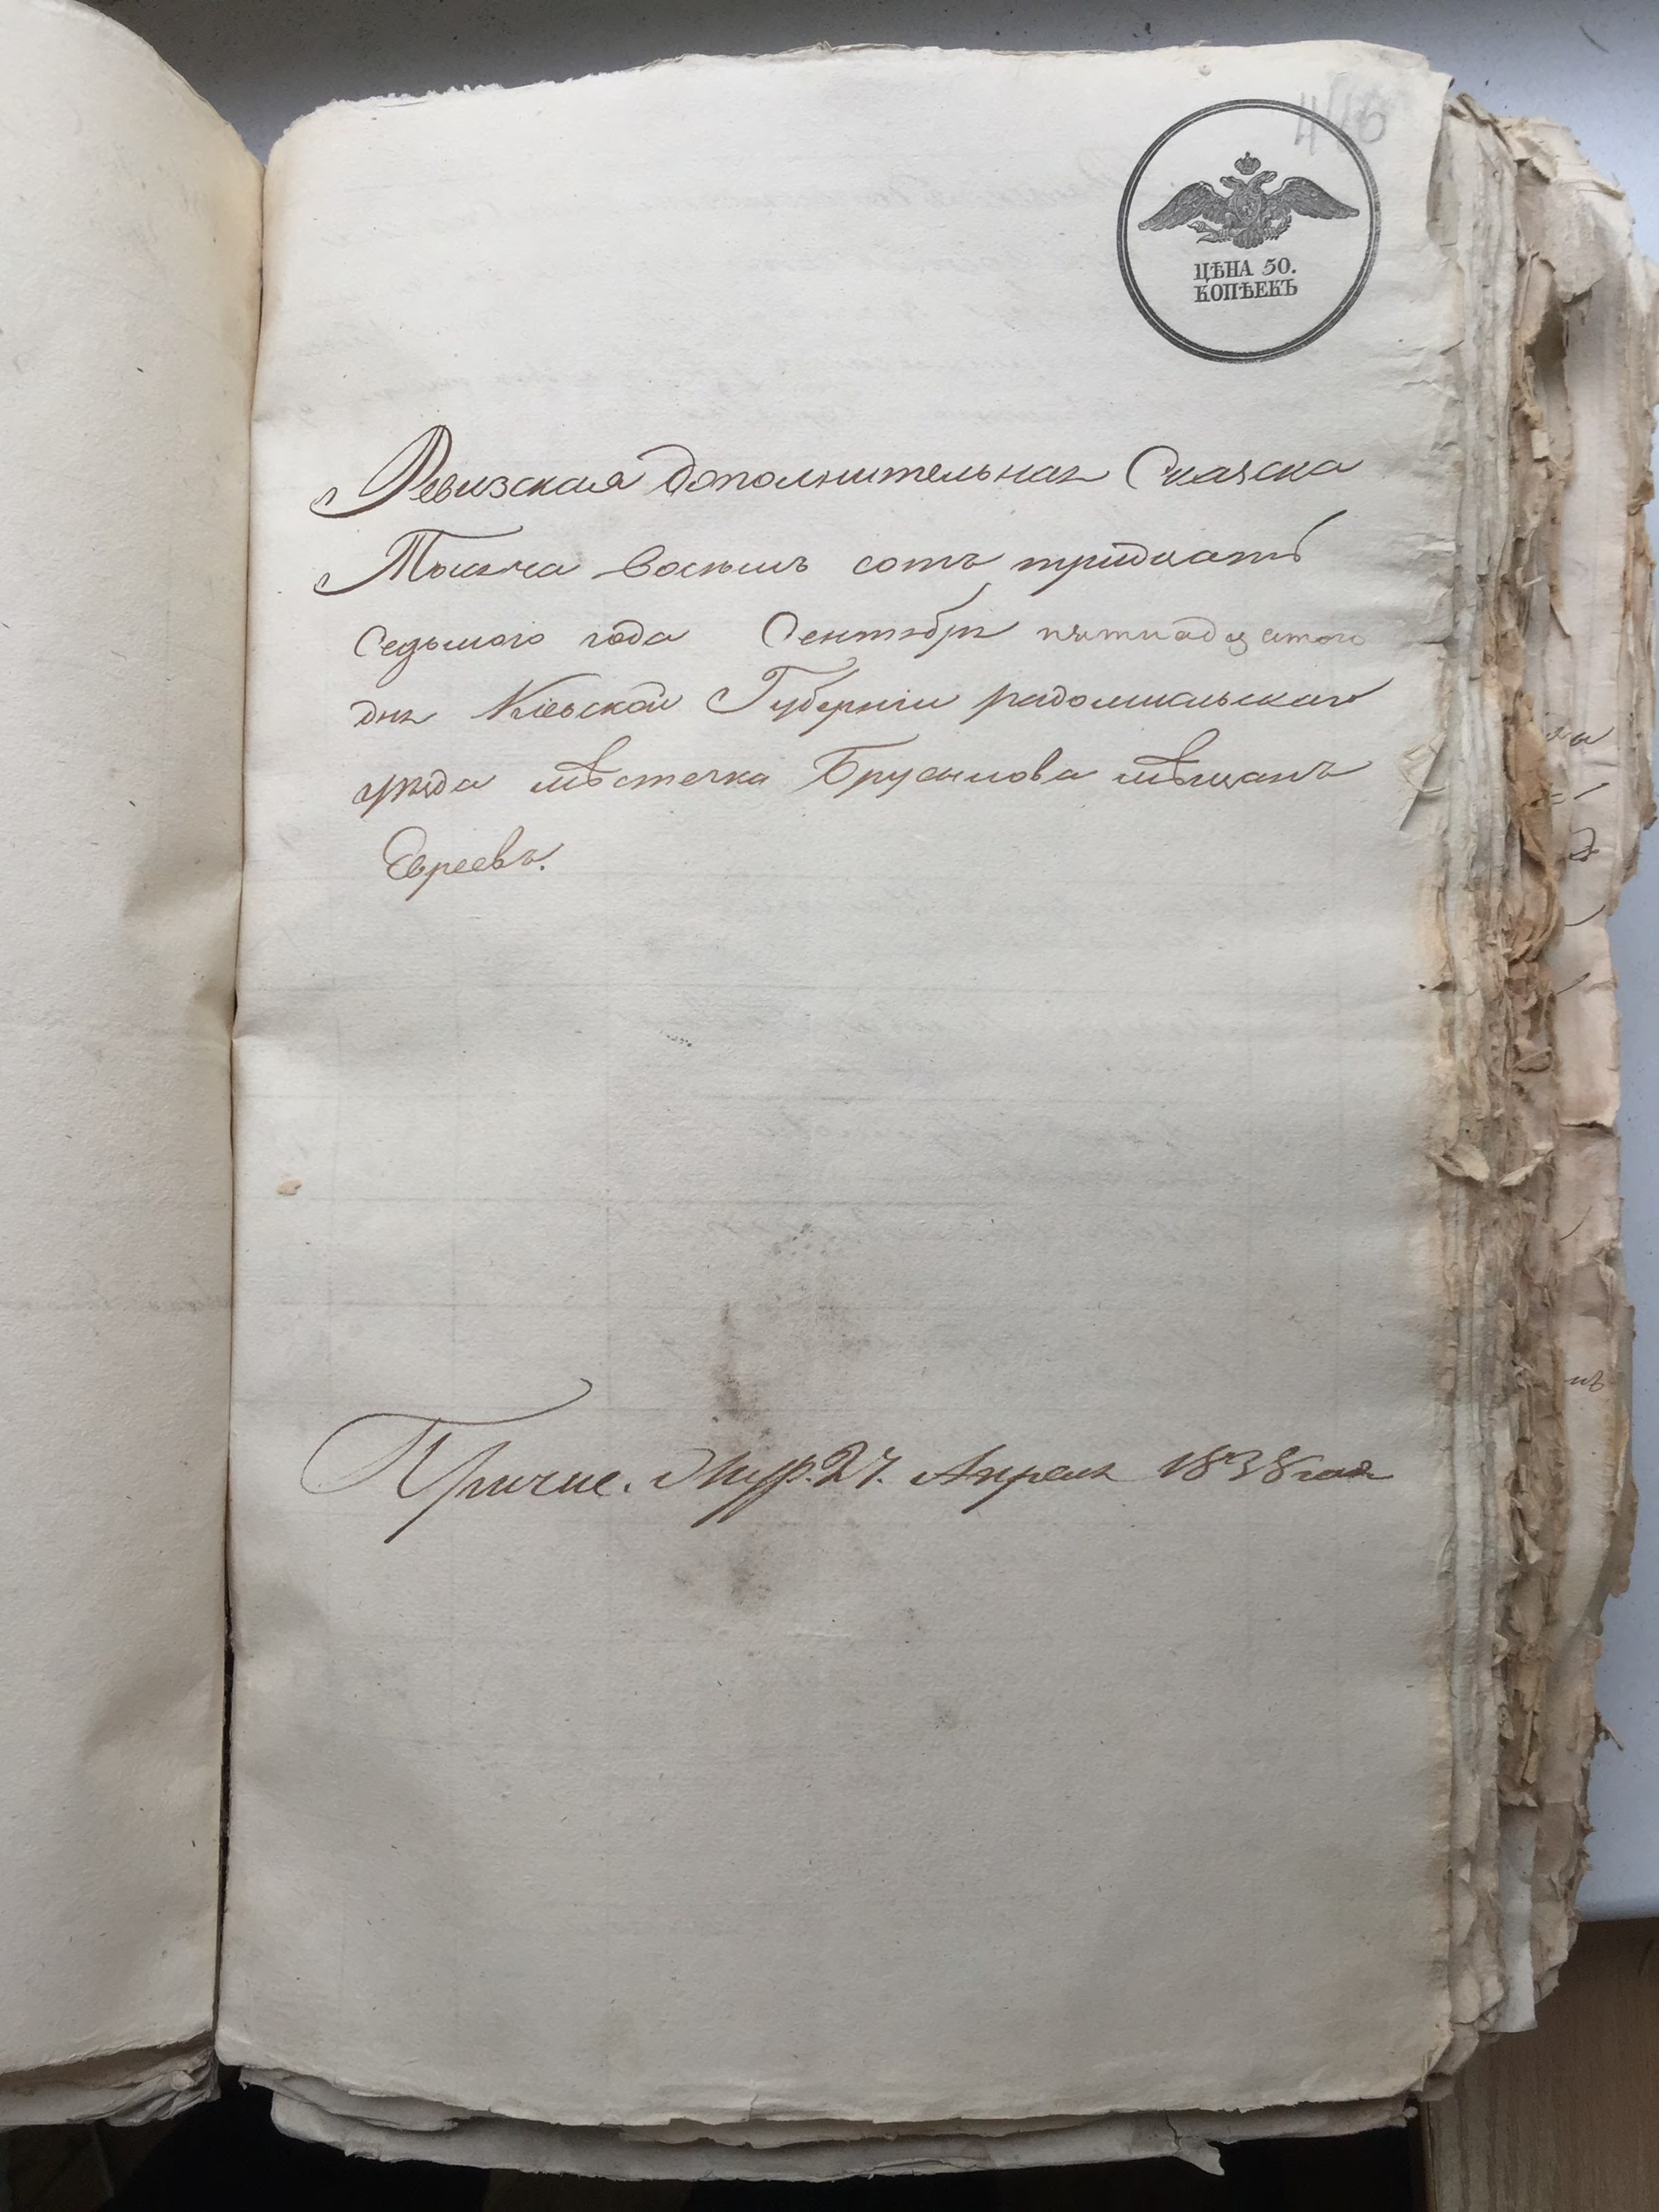 ЦѢНА 50.
КОПѢЕКЪ
Ревизская дополнительная Сказска
Тысяча восемь сотъ тридцать
седьмого года Сентября пятнадцатого
дня Кіевской Губерніи радомысльскаго
уѣзда мѣстечка Брусилова мѣщанъ
Евреевъ.
27. Апреля 1838 года